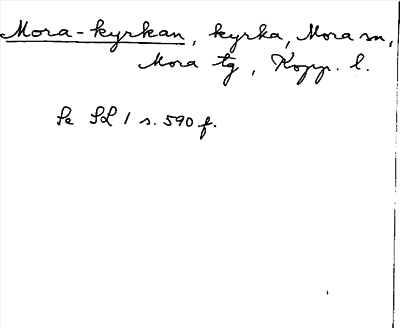 Mora-kyrkan, kyrka, Mora sn,
Mora tg, Kopp. l.
Se SL 1 s. 590 f.